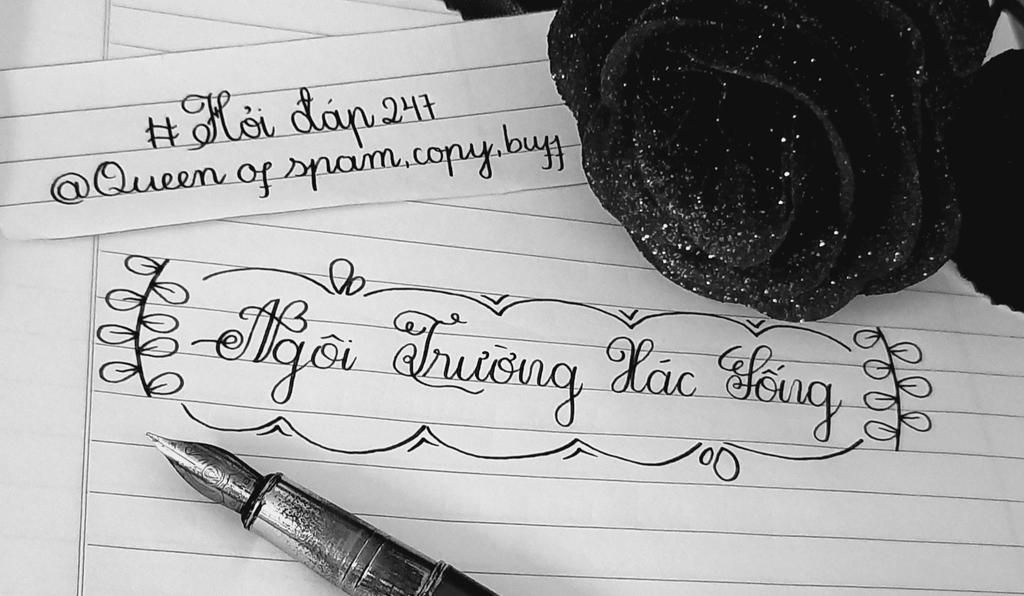 #Hỏi đáp 247
@Queen of spam,copy,buff
Ngôi Trường Xác Sống